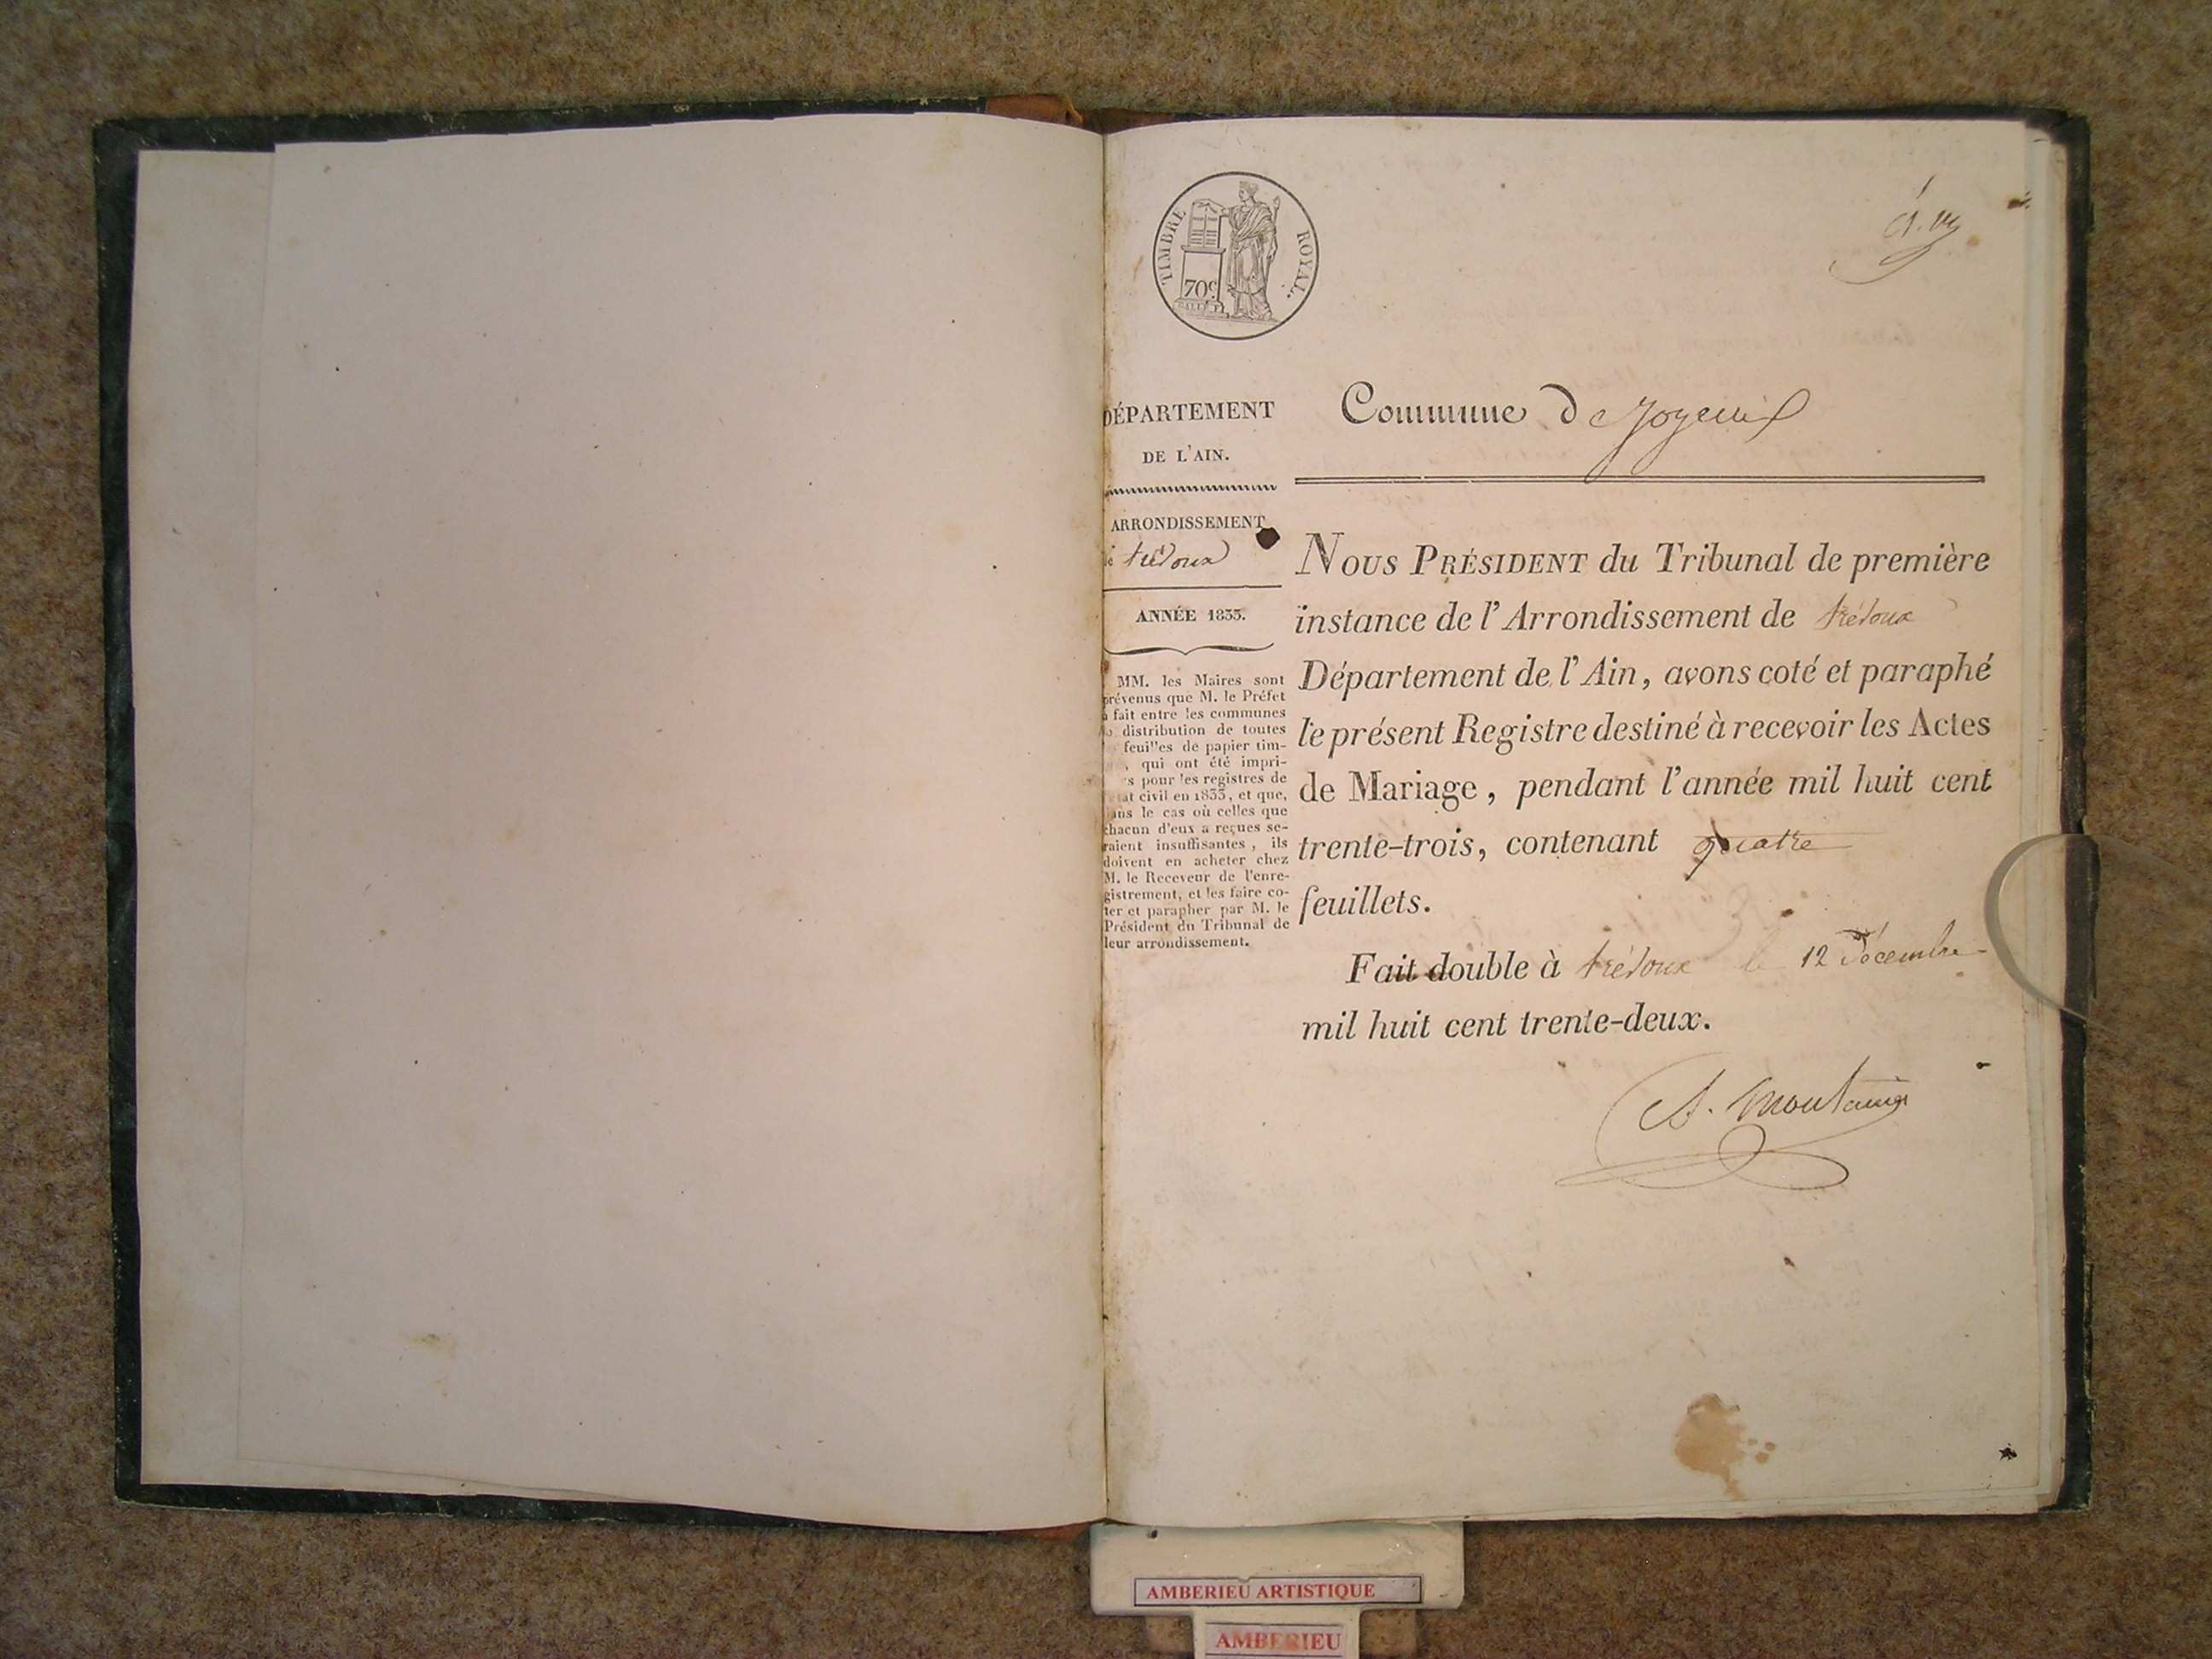 TIMBRE ROYAL.
70c
DÉPARTEMENT
DE L'AIN.
ARRONDISSEMENT
trévoux
ANNÉE 1833.
MM. les Maires sont
prévenus que M. le Préfet
a fait entre les communes
distribution de toutes
feuilles de papier tim-
, qui ont été impri-
s pour les registres de
état civil en 1833, et que,
dans le cas où celles que
chacun d'eux a reçues se-
raient insuffisantes, ils
doivent en acheter chez
M. le Receveur de l'enre-
gistrement, et les faire co-
ter et parapher par M. le
Président du Tribunal de
leur arrondissement.
Commune de Joyeux
NOUS PRÉSIDENT du Tribunal de première
instance de l'Arrondissement de trévoux
Département de l'Ain, avons coté et paraphé
le présent Registre destiné à recevoir les Actes
de Mariage, pendant l'année mil huit cent
trente-trois, contenant quatre
feuillets.
Fait double à trévoux le 12 décembre
mil huit cent trente-deux.
AMBERIEU ARTISTIQUE
AMBERIEU